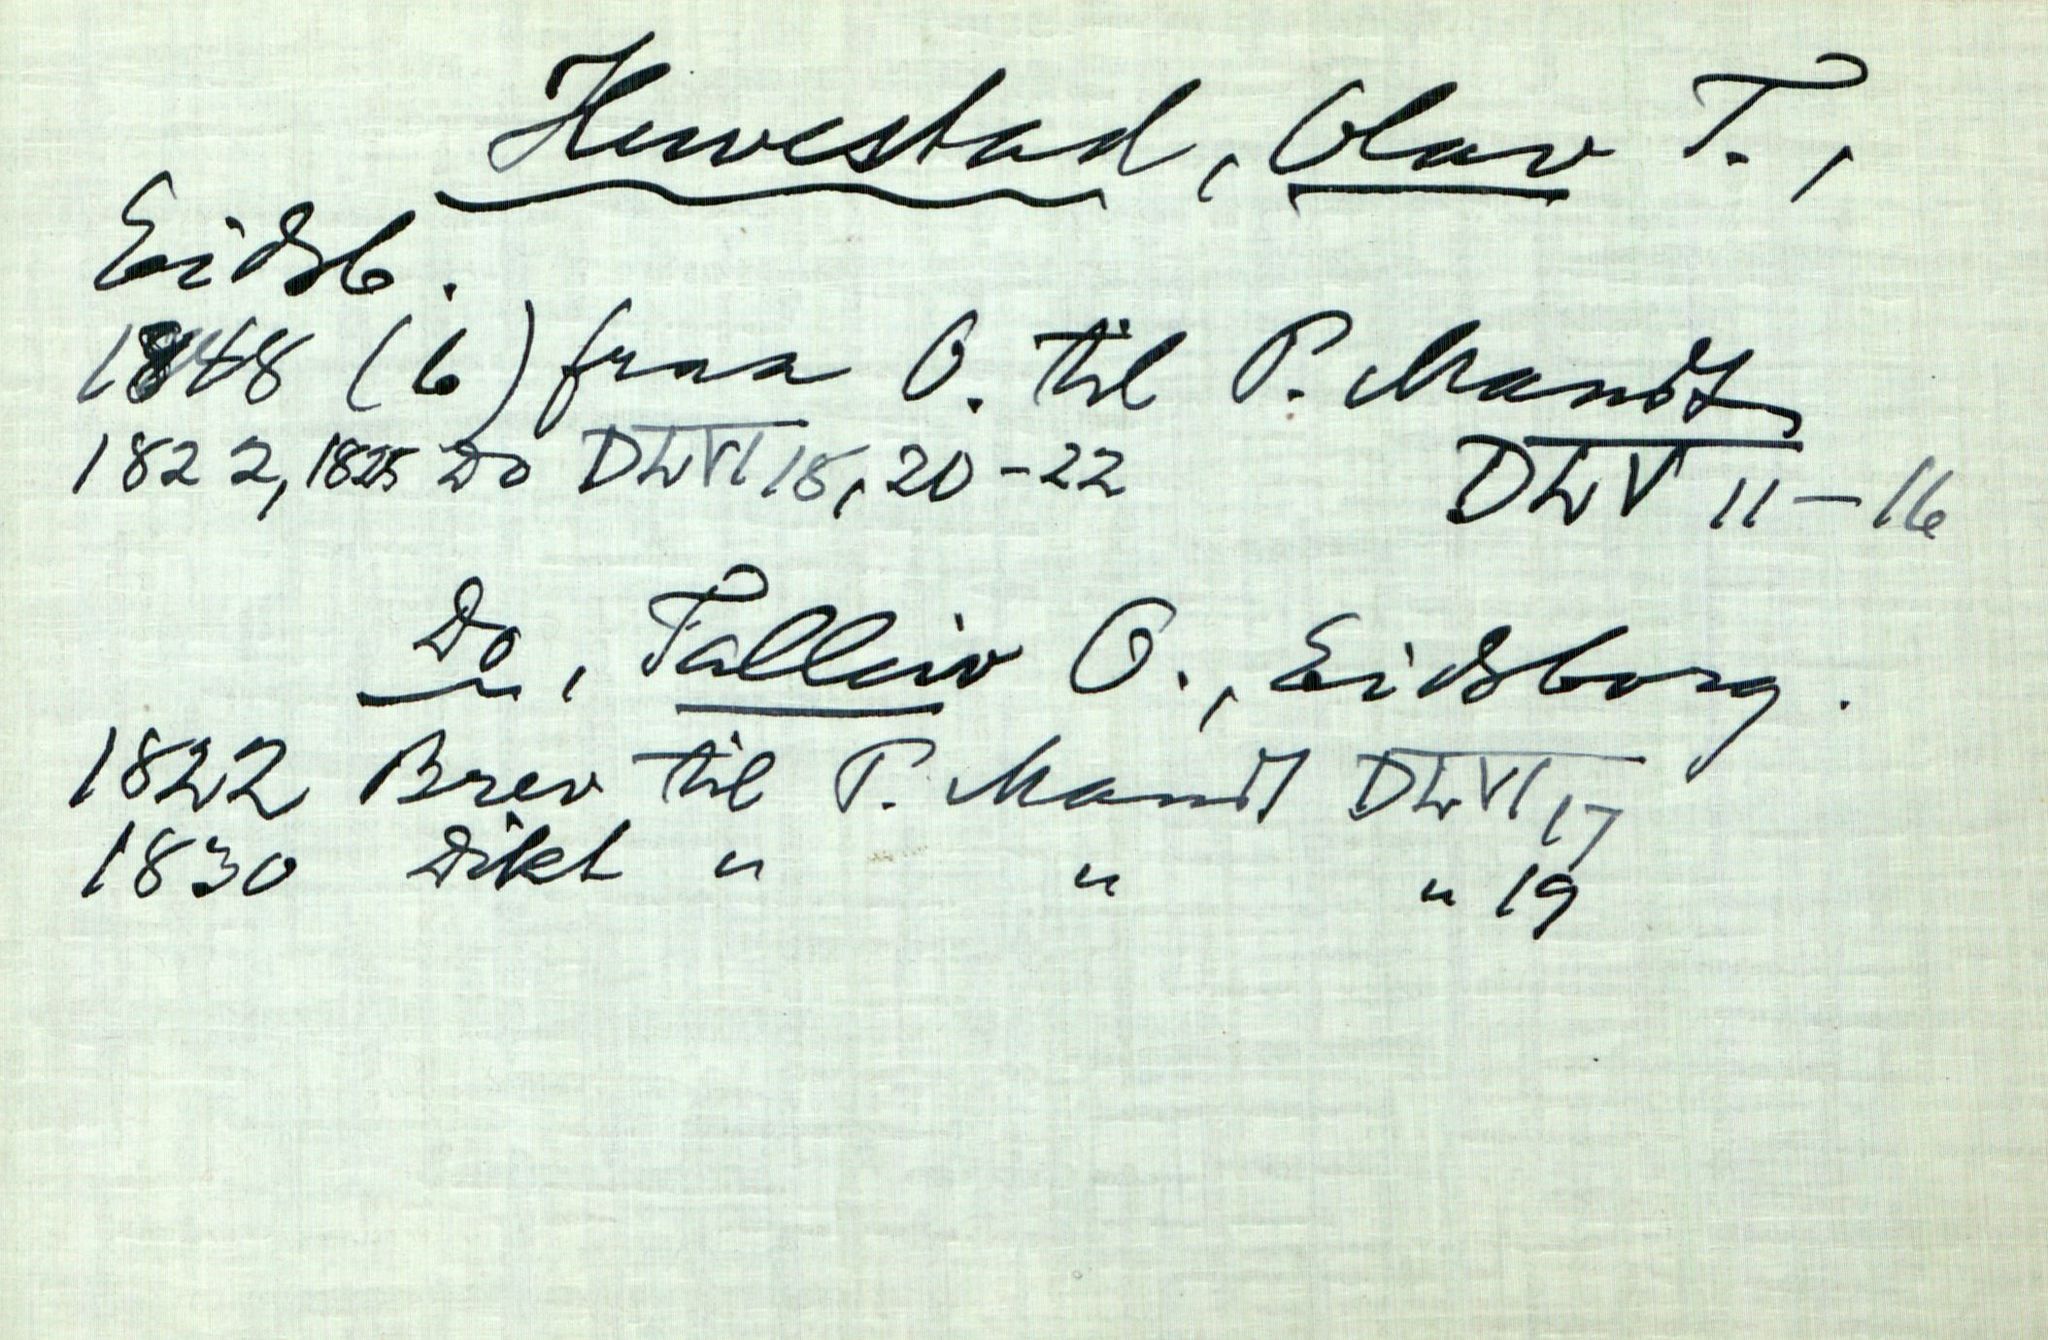 Huvestad, Olav T.,
Eidsb.
1848 (6) fraa O. til P. Mandt
DLV 11-16
1822, 1825 Do DLVI 18, 20-22
Do, Talleiv O., Eidsborg.
1822 Brev til P. Mandt DLVI 17
1830 Dikt " " " 19